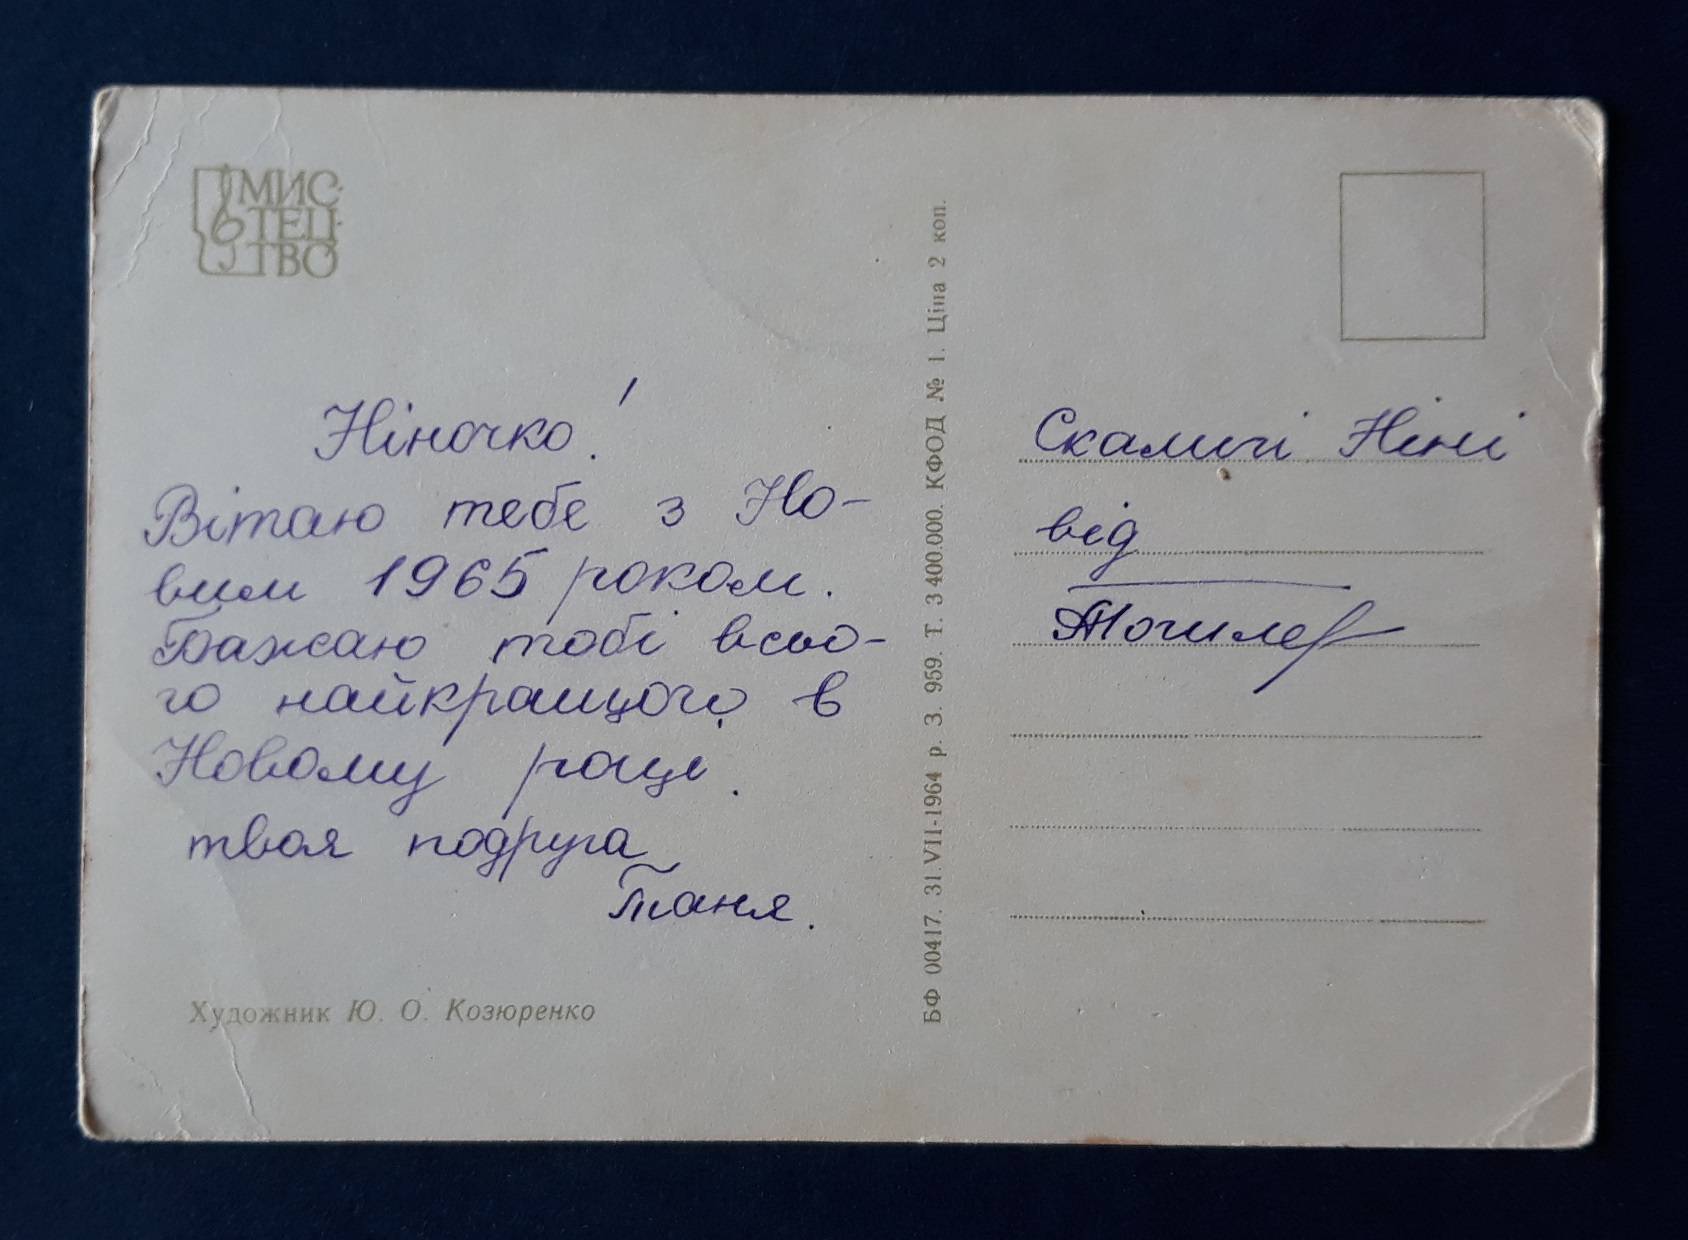 МИС-
ТЕЦ-
ТВО
Ніночко!
Вітаю тебе з Но-
вим 1965 роком.
Бажаю тобі всьо-
го найкращого в
Новому році.
твоя подруга
Таня.
Художник Ю. О. Козюренко
БФ 00417. 31.VII-1964 р. З. 959. Т. 3 400.000. КФОД № 1. Ціна 2 коп.
Ніні
від